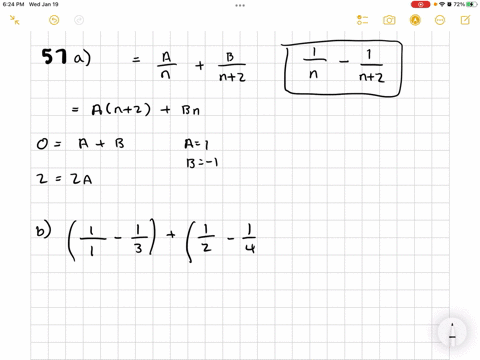 6:24 PM Wed Jan 19 72%
57 a) = A/n + B/(n+2) 1/n - 1/(n+2)
= A(n+2) + Bn
0 = A + B A=1
B=-1
2 = 2A
b) (1/1 - 1/3) + (1/2 - 1/4